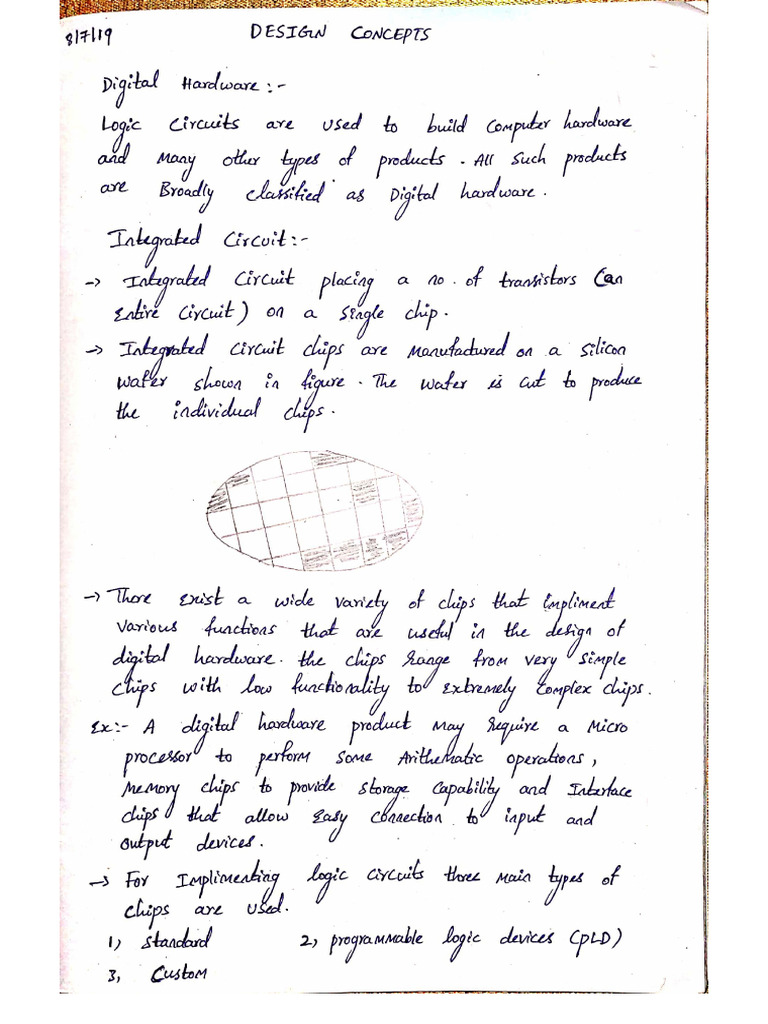 8/7/19
DESIGN CONCEPTS
Digital Hardware:-
Logic Circuits are used to build Computer hardware
and Many other types of products. All such products
are Broadly Classified as Digital hardware.
Integrated Circuit:-
→ Integrated Circuit placing a no. of transistors (an
Entire Circuit) on a Single chip.
→ Integrated Circuit chips are Manufactured on a Silicon
Wafer shown in figure. The Wafer is cut to produce
the individual chips.
→ There exist a wide variety of chips that Impliment
various functions that are useful in the design of
digital hardware. the chips Range from very Simple
Chips with low functionality to Extremely Complex chips.
Ex:- A digital hardware product may Require a Micro
processor to perform Some Arithematic operations,
Memory chips to provide Storage Capability and Interface
chips that allow Easy Connection to input and
output devices.
→ For Implimenting logic circuits three main types of
chips are used.
1) Standard 2) programmable logic devices (PLD)
3) Custom